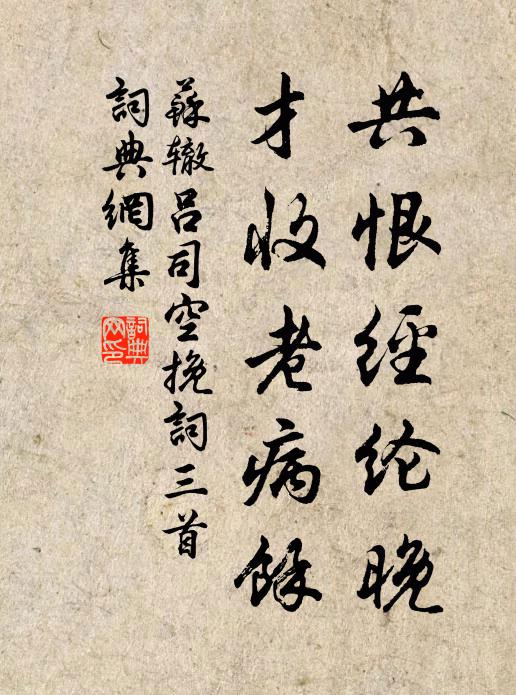 共恨經纶晚
才收老病餘
蘇辙吕司空挽詞三首
詞典網集
詞典网印